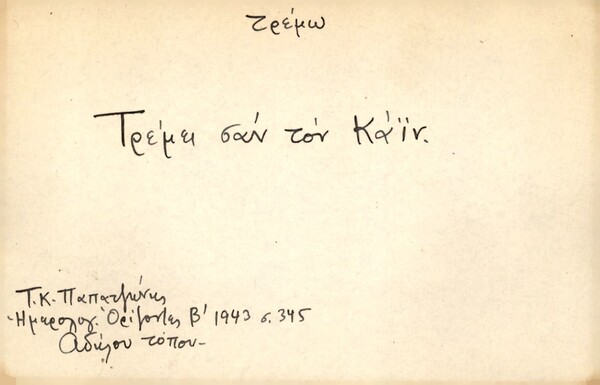 τρέμω
Τρέμει σάν τόν Κάϊν.
Τ.Κ. Παπατζώνης
Ἡμερολογ. Ὁρίζοντες Β' 1943 σ. 345
Ἀδήλου τόπου-